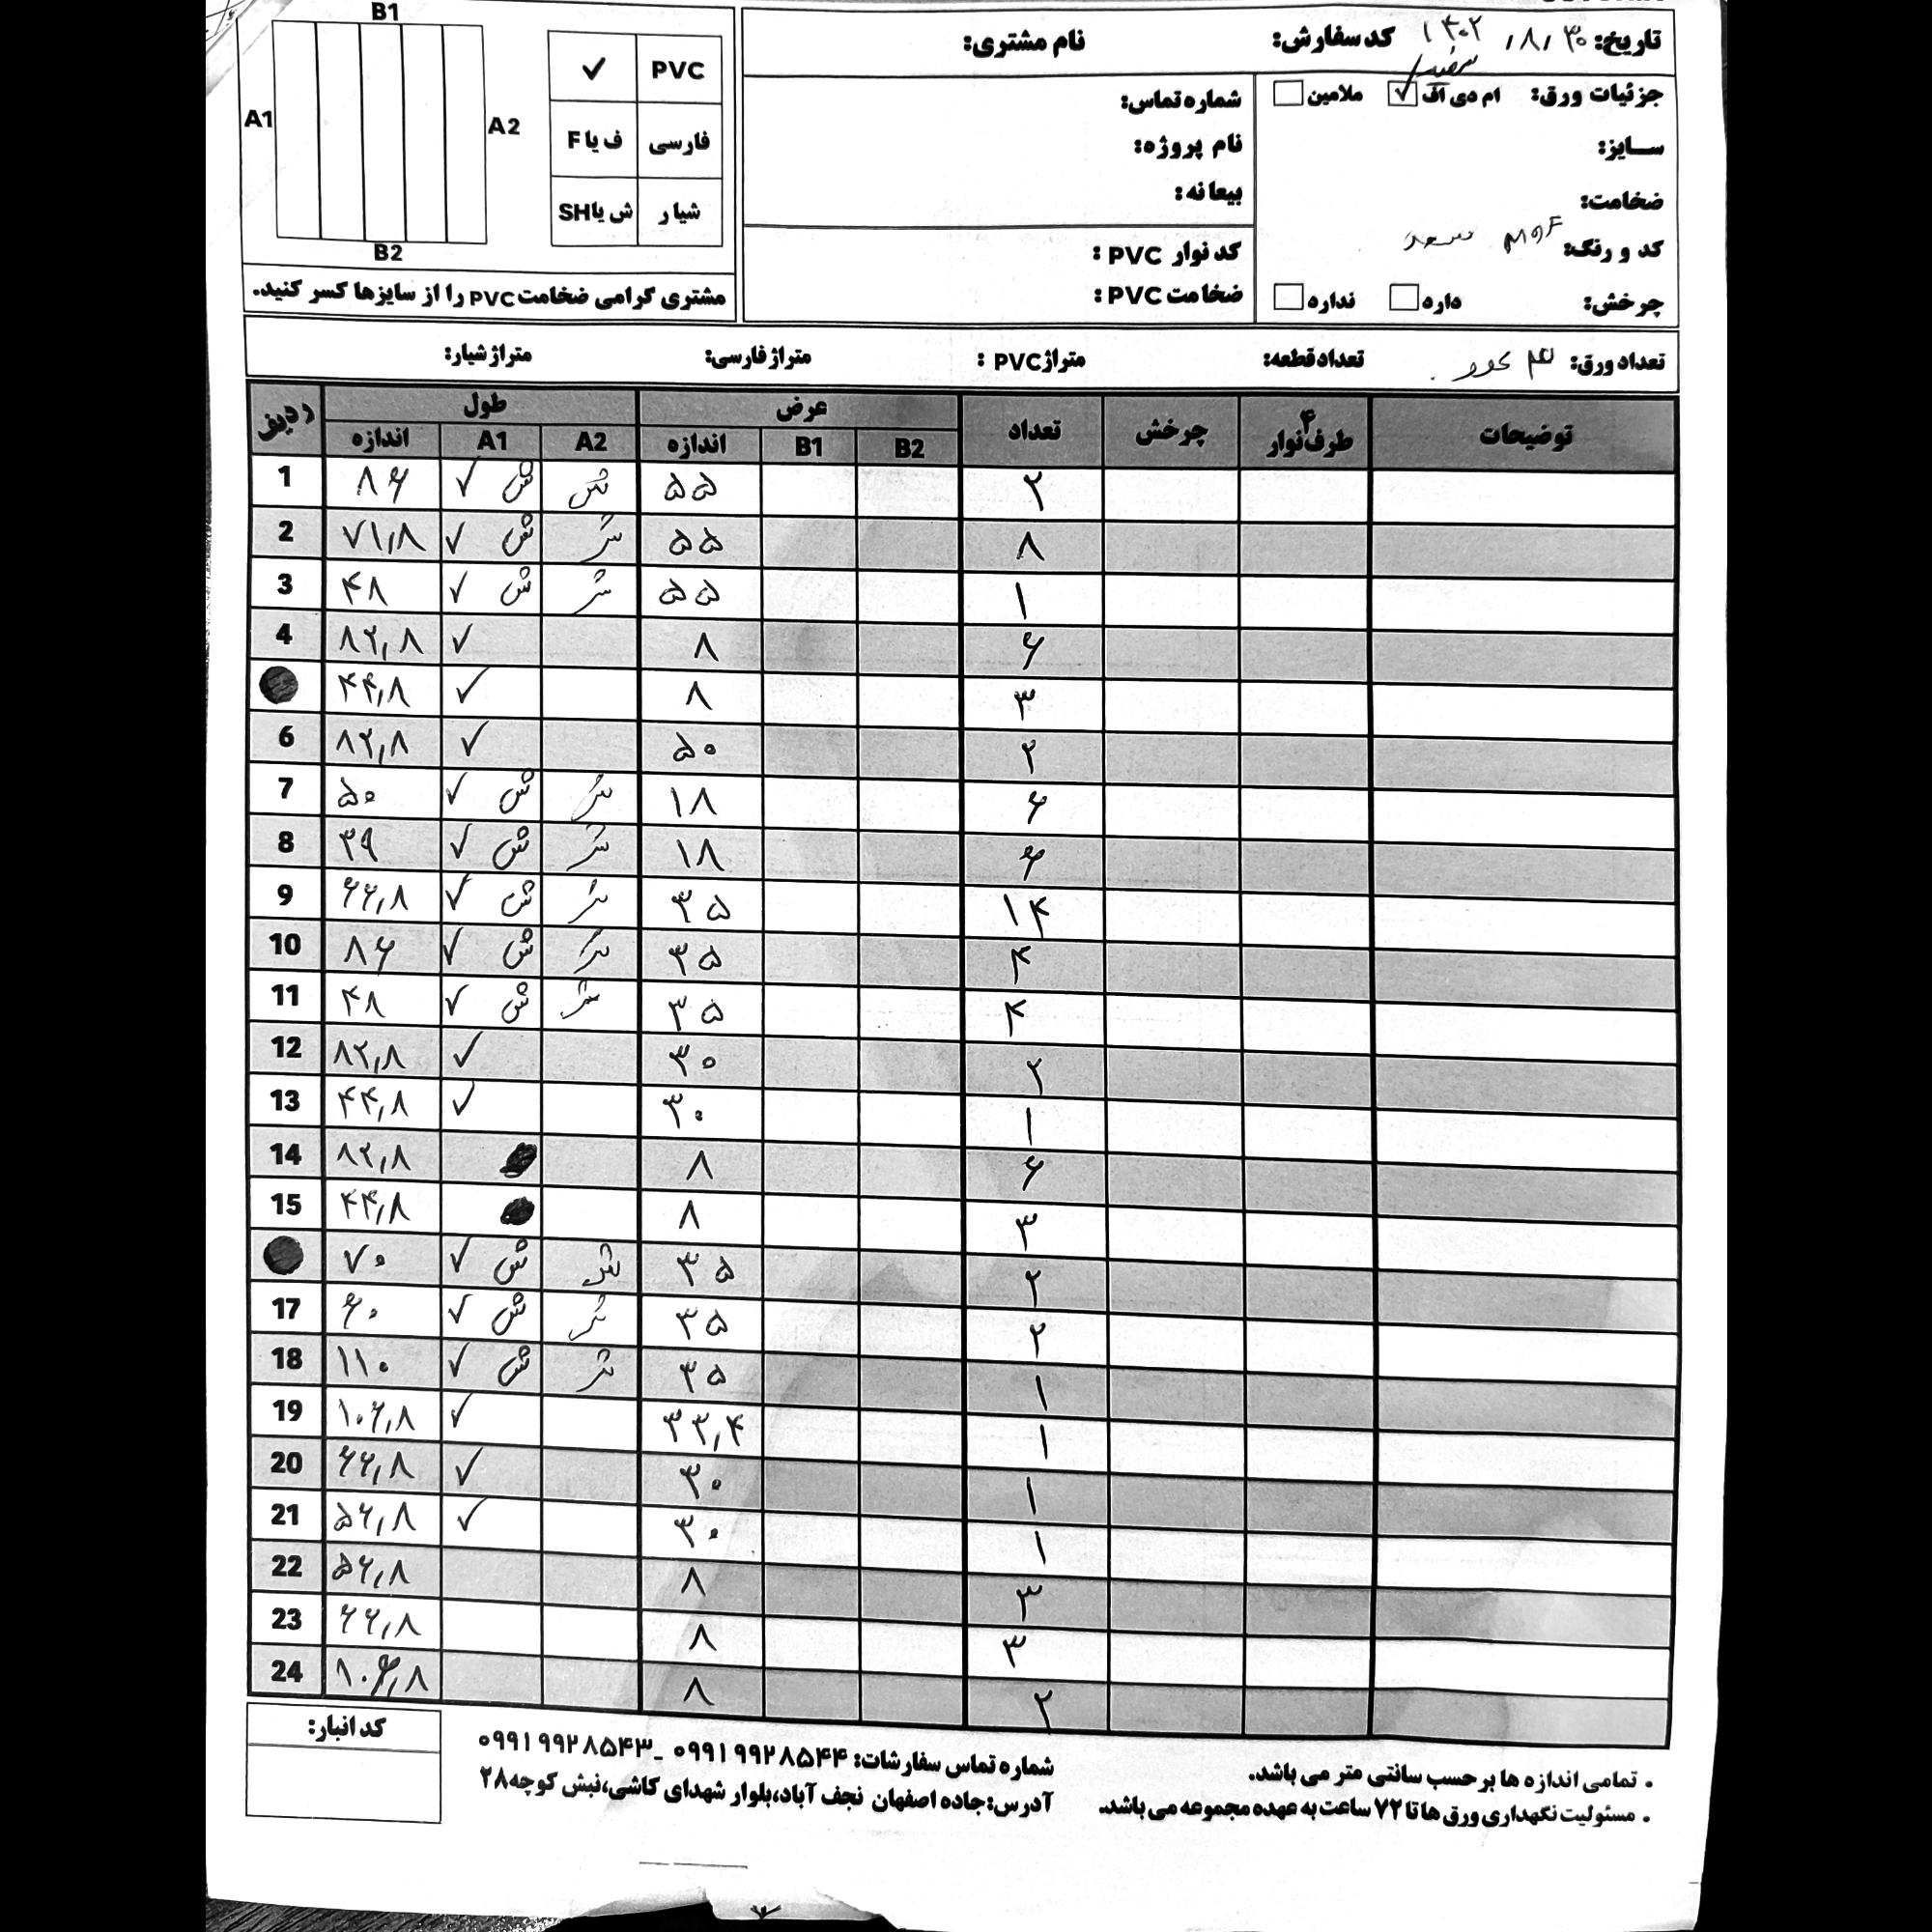 تاریخ: ۱۴۰۲/۸/۳۰ کد سفارش: نام مشتری:
جزئیات ورق: ام دی اف ✓ ملامین
سایز:
ضخامت:
کد و رنگ: MDF
چرخش: داره نداره
شماره تماس:
نام پروژه:
بیعانه:
کد نوار PVC :
ضخامت PVC :
PVC ✓
فارسی ف یا F
شیار ش یا SH
B1
A1 A2
B2
مشتری گرامی ضخامت PVC را از سایزها کسر کنید.
تعداد ورق: تعداد قطعه: متراژ PVC : متراژ فارسی: متراژ شیار:
ردیف طول عرض تعداد چرخش ۴ طرف نوار توضیحات
اندازه A1 A2 اندازه B1 B2
1 ۸۶ ✓ ش ش ۵۵ ۲
2 ۷۱,۸ ✓ ش ش ۵۵ ۸
3 ۴۸ ✓ ش ش ۵۵ ۱
4 ۸۲,۸ ✓ ۸ ۶
۴۴,۸ ✓ ۸ ۳
6 ۸۲,۸ ✓ ۵۰ ۲
7 ۵۰ ✓ ش ش ۱۸ ۶
8 ۳۹ ✓ ش ش ۱۸ ۶
9 ۶۶,۸ ✓ ش ش ۳۵ ۱۴
10 ۸۶ ✓ ش ش ۳۵ ۴
11 ۴۸ ✓ ش ش ۳۵ ۴
12 ۸۲,۸ ✓ ۳۰ ۲
13 ۴۴,۸ ✓ ۳۰ ۱
14 ۸۲,۸ ۸ ۶
15 ۴۴,۸ ۸ ۳
۷۰ ✓ ش ش ۳۵ ۲
17 ۶۰ ✓ ش ش ۳۵ ۲
18 ۱۱۰ ✓ ش ش ۳۵ ۱
19 ۱۰۶,۸ ✓ ۳۳,۴ ۱
20 ۶۶,۸ ✓ ۳۰ ۱
21 ۵۶,۸ ✓ ۳۰ ۱
22 ۵۶,۸ ۸ ۳
23 ۶۶,۸ ۸ ۳
24 ۱۰۶,۸ ۸ ۲
کد انبار:
شماره تماس سفارشات: ۰۹۹۱۹۹۲۸۵۴۴ _ ۰۹۹۱۹۹۲۸۵۴۳
آدرس:جاده اصفهان نجف آباد،بلوار شهدای کاشی،نبش کوچه۲۸
• تمامی اندازه ها برحسب سانتی متر می باشد.
• مسئولیت نگهداری ورق ها تا ۷۲ ساعت به عهده مجموعه می باشد.